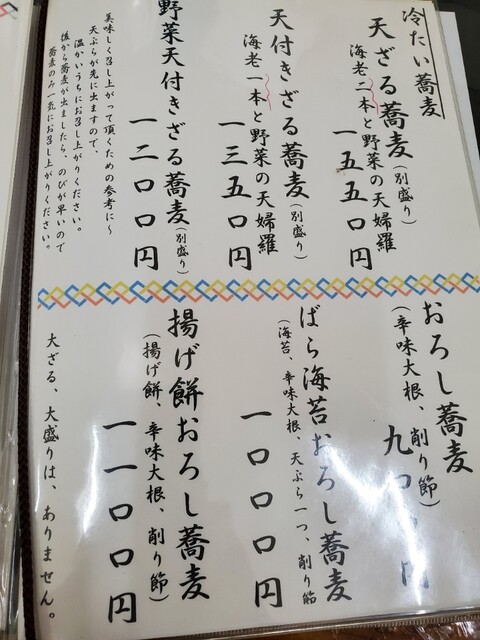 冷たい蕎麦
天ざる蕎麦(別盛り)
海老二本と野菜の天婦羅
一五五〇円
天付きざる蕎麦(別盛り)
海老一本と野菜の天婦羅
一三五〇円
野菜天付きざる蕎麦(別盛り)
一二〇〇円
美味しく召し上がって頂くための参考に〜
天ぷらが先に出ますので、
温かいうちにお召し上がりください。
後から蕎麦が出ましたら、のびが早いので
蕎麦のみ一気にお召し上がりください。
おろし蕎麦
(辛味大根、削り節)
九〇〇円
ばら海苔おろし蕎麦
(海苔、辛味大根、天ぷら一つ、削り節
一〇〇〇円
揚げ餅おろし蕎麦
(揚げ餅、辛味大根、削り節)
一一〇〇円
大ざる、大盛りは、ありません。